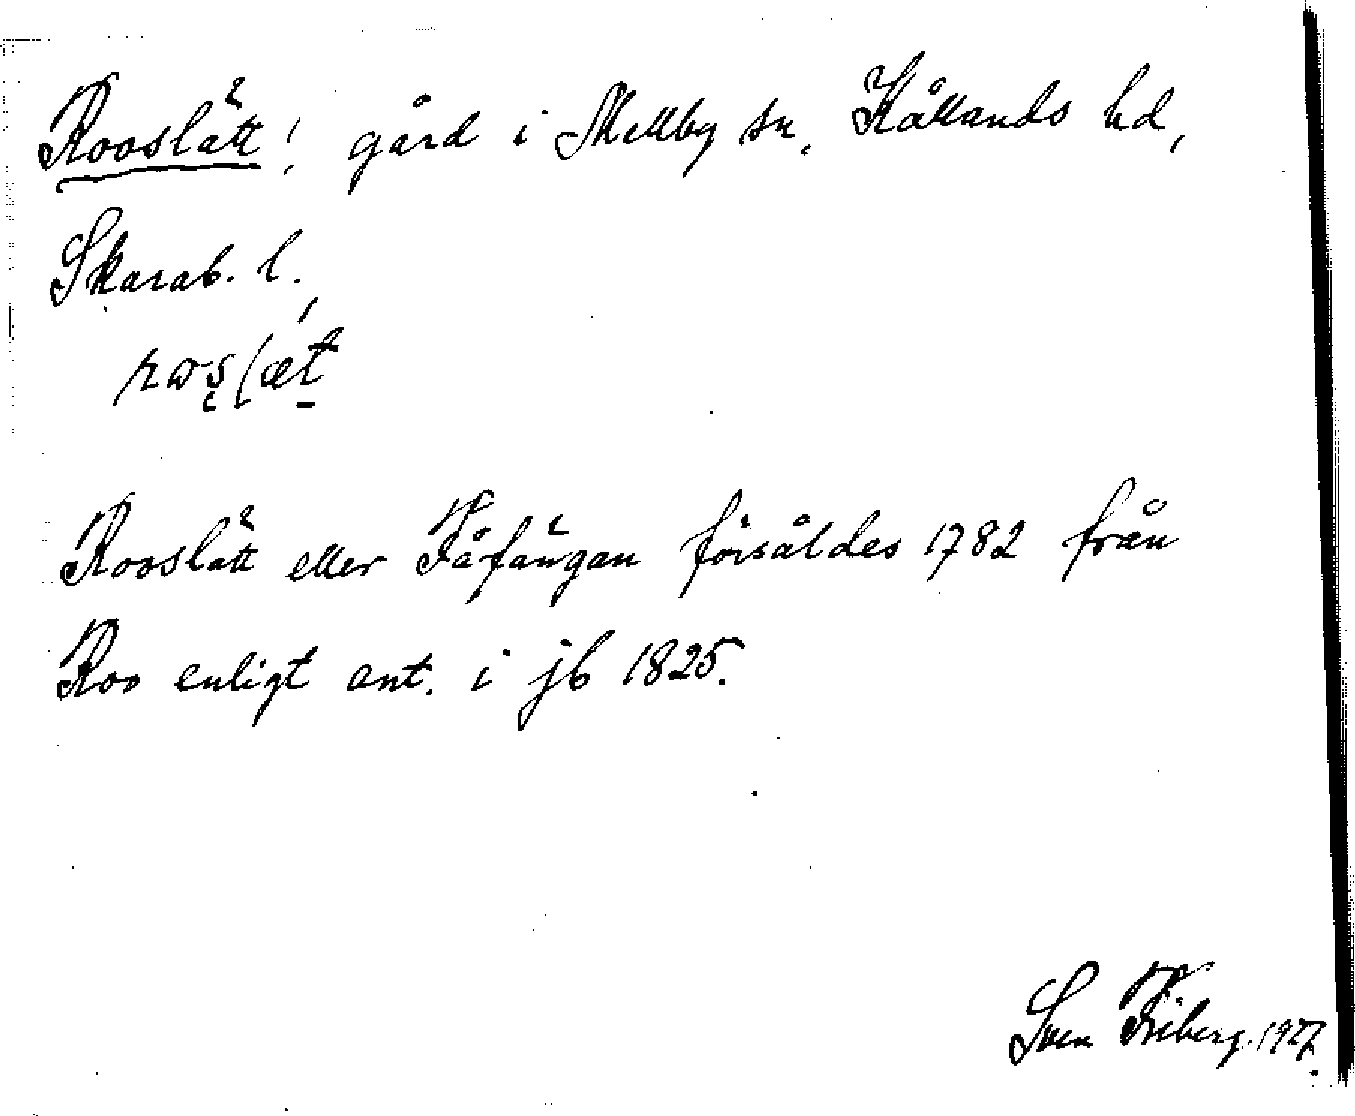 Rooslätt! gård i Mellby sn, Kållands hd,
Skarab. l.
Rooslätt eller Fåfängan försåldes 1782 från
Roo enligt ant. i jb 1825.
Sven Friberg. 1927.